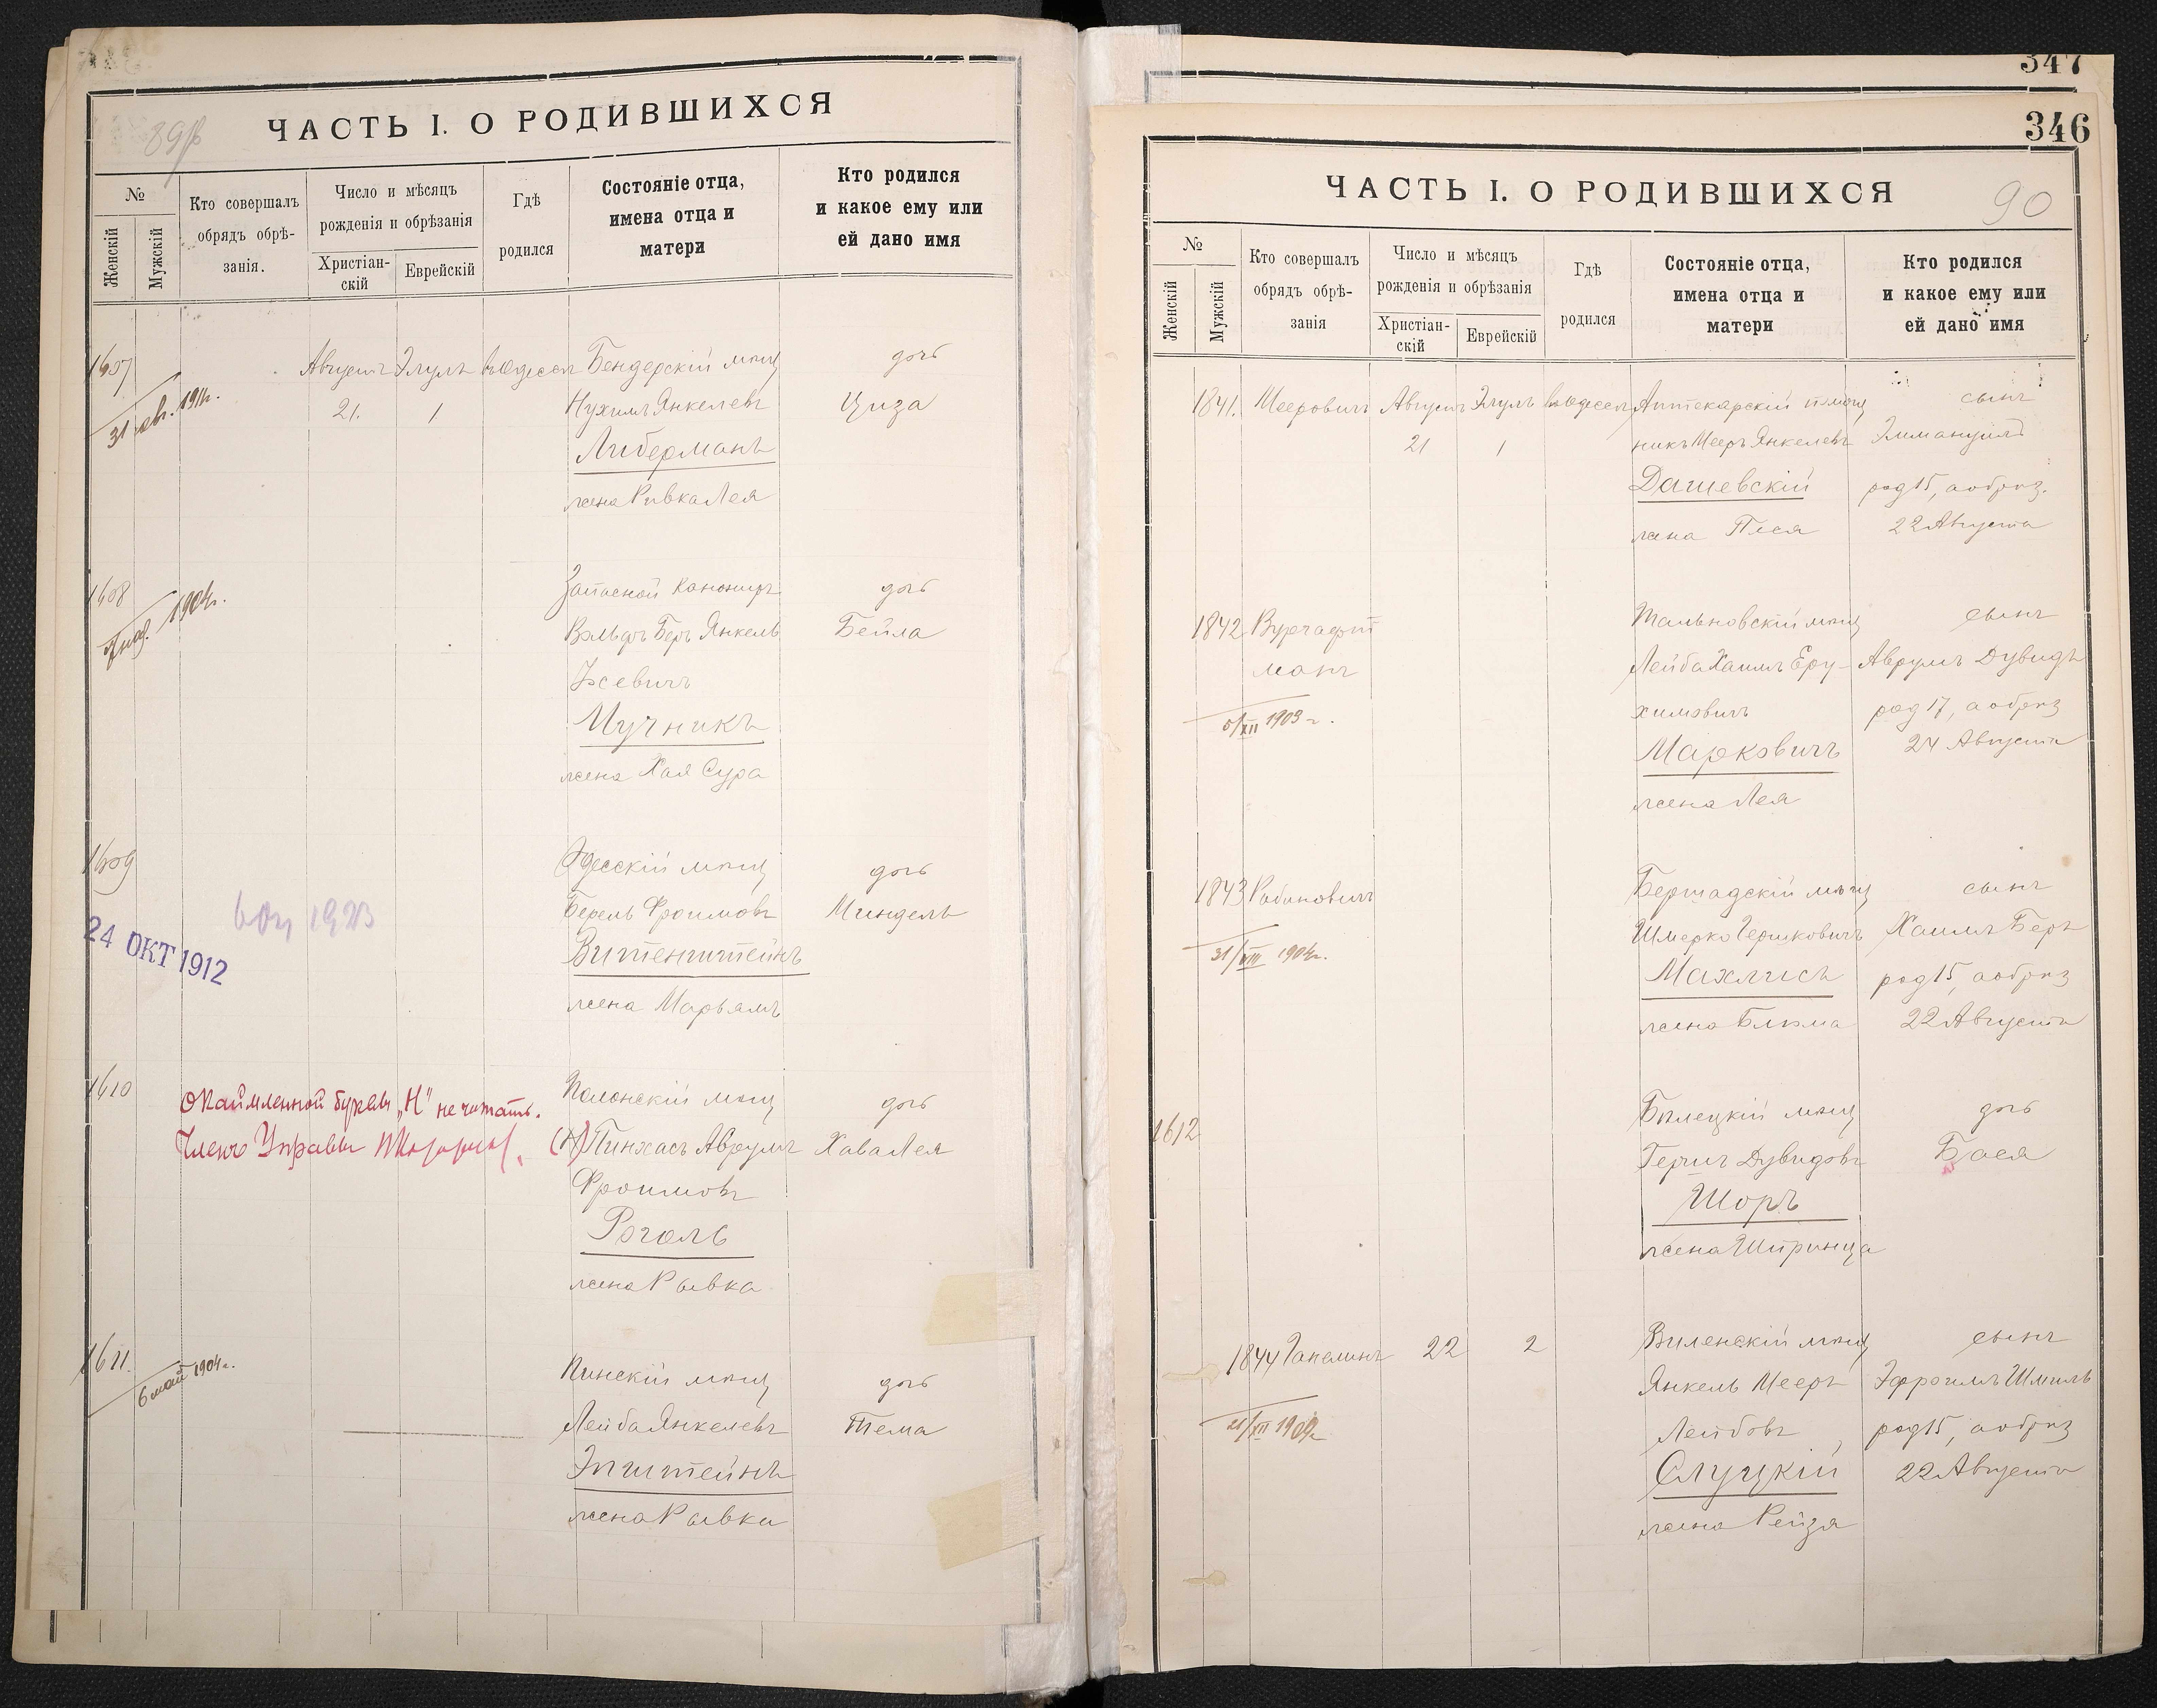 89
ЧАСТЬ I. О РОДИВШИХСЯ
№
Женскій
Мужскій
Кто совершалъ
обрядъ обрѣ-
занія.
Число и мѣсяцъ
рожденія и обрѣзанія
Христіан-
скій
Еврейскій
Гдѣ
родился
Состояніе отца,
имена отца и
матери
Кто родился
и какое ему или
ей дано имя
1607
Августъ Элулъ въ Одессѣ Бендерскій мѣщ дочь
21. 1 Нухимъ Янкелевъ Циза
Либерманъ
жена Ривка Лея
1608
1904г.
Запасной Канониръ дочь
Вольфъ Беръ Янкель Бейла
Мучникъ
жена Хая Сура
1609
Одесскій мѣщ дочь
Берель Фроимовъ Миндель
1923
24 ОКТ 1912
Витенштейнъ
жена Марьямъ
1610
Окаймленной буквы „Н" не читать.
Членъ Управы
Полонскій мѣщ дочь
(Н) Пинхасъ Аврумъ Хава Лея
Фроимовъ
Роголь
жена Рывка
1611.
6 май 1904г.
Пинскій мѣщ дочь
Лейба Янкелевъ Тема
Эпштейнъ
жена Рывка
347
346
90
ЧАСТЬ I. О РОДИВШИХСЯ
№
Женскій
Мужскій
Кто совершалъ
обрядъ обрѣ-
занія
Число и мѣсяцъ
рожденія и обрѣзанія
Христіан-
скій
Еврейскій
Гдѣ
родился
Состояніе отца,
имена отца и
матери
Кто родился
и какое ему или
ей дано имя
1841. Мееровичъ Августъ Элулъ въ Одессѣ Аптекарскій помощ сынъ
21 1 никъ Мееръ Янкелевъ Эммануилъ
Дашевскій род 15, а обрѣз.
жена Песя 22 Августа
1842 Тальновскій мѣщ сынъ
манъ Лейба Хаимъ Еру- Аврумъ Дувидъ
5/XII 1903 г.
химовичъ род 17, а обрѣз
Марковичъ 24 Августа
жена Лея
1843 Рабиновичъ Бершадскій мѣщ сынъ
31/VIII 1904г.
Шмерко Гершковичъ Хаимъ Беръ
Махлисъ род 15, а обрѣз
жена Блюма 22 Августа
1612
Бѣлецкій мѣщ дочь
Гершъ Дувидовъ Бася
Шоръ
жена Шпринца
1844 Гапелинъ 22 2 Виленскій мѣщ сынъ
Янкель Мееръ Эфроимъ Шмиль
Лейбовъ род 15, а обрѣз
Слуцкій 22 Августа
жена Рейзя